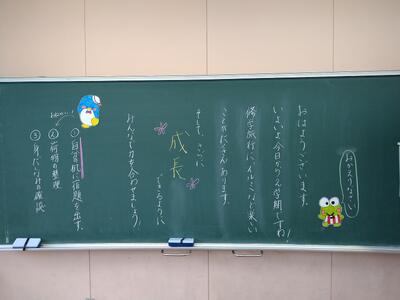 おかえりなさい
おはようございます。
いよいよ今日から2学期ですね！
修学旅行に、イルミなど楽しい
ことがたくさんあります。
そして、さらに
成長
できるように
みんなで力を合わせましょう！
①自習机に宿題を出す。
②荷物の整理
③身だしなみの確認